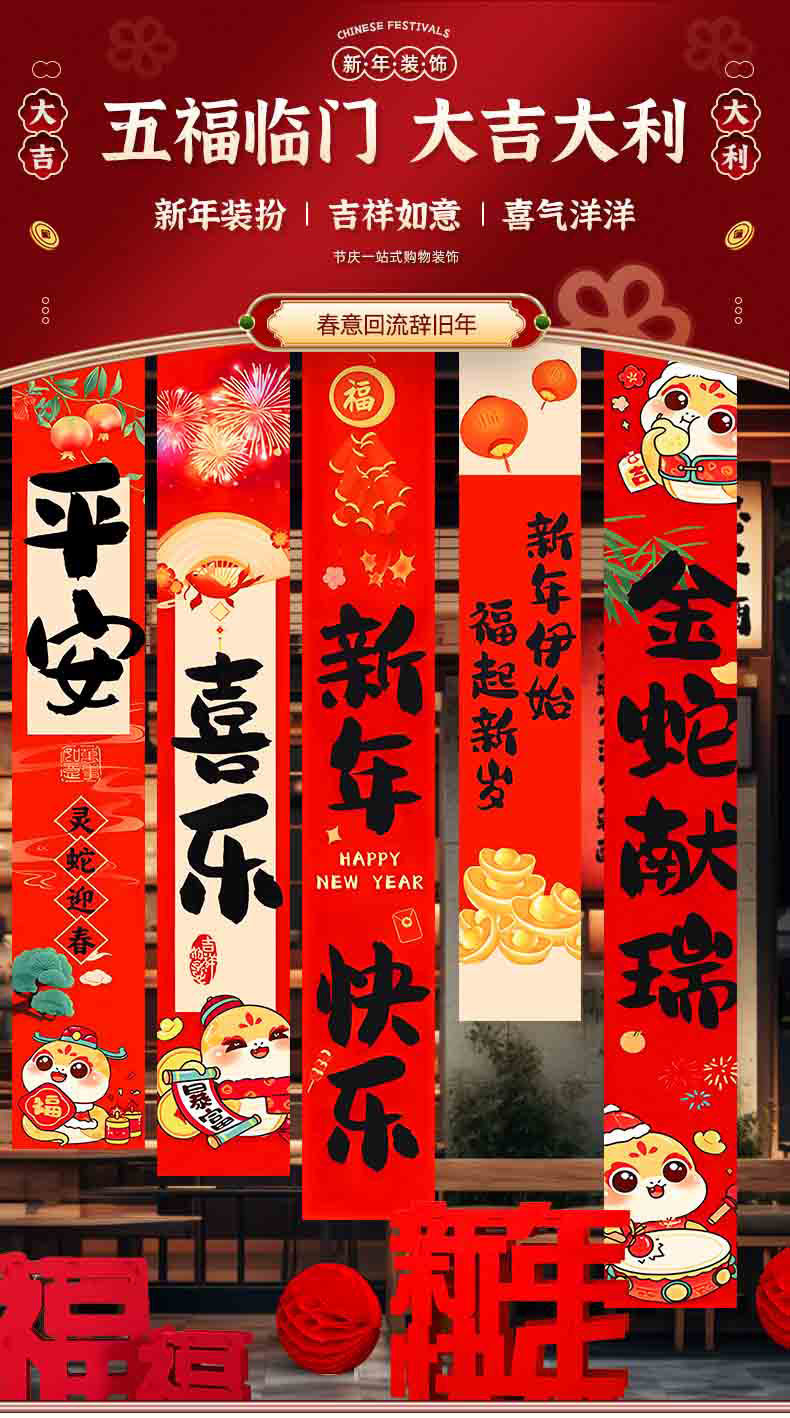 CHINESE FESTIVALS
新年装饰
大吉
五福临门 大吉大利
大利
新年装扮 | 吉祥如意 | 喜气洋洋
节庆一站式购物装饰
春意回流辞旧年
平安
灵蛇迎春
福
喜乐
吉祥
暴富
福
新年
HAPPY
NEW YEAR
快乐
新年伊始
福起新岁
吉
金蛇献瑞
福
福
新年
快乐